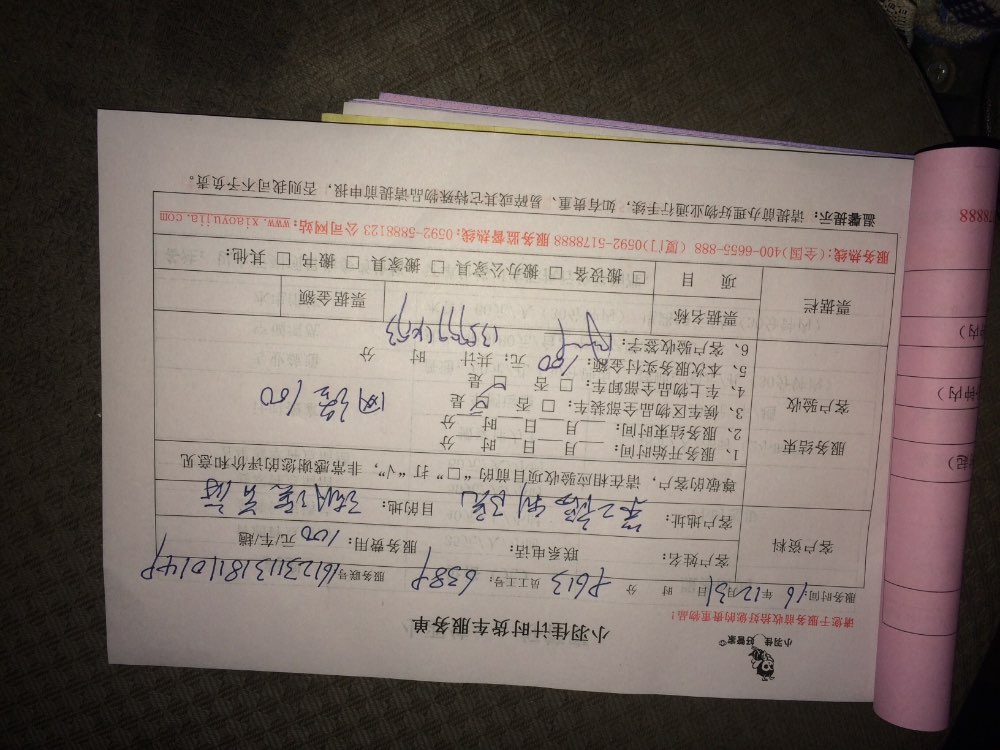 小羽佳 好管家
小羽佳计时货车服务单
请您于服务前收拾好您的贵重物品!
服务时间:16 年 12 月 31 日 时 分 员工号:6389 服务联号
客户资料
客户姓名: 联系电话: 服务费用:100 元/车/趟
客户地址: 目的地:
尊敬的客户,请在相应验收项目前的“□”打“√”,非常感谢您的评价和意见
服务结束
客户验收
1、服务开始时间: 月 日 时 分
2、服务结束时间: 月 日 时 分
3、候车区物品全部车装:□ 否 ☑ 是
4、车上物品全部卸车:□ 否 □ 是
5、本次服务实付金额:100 元;共计 时 分
6、客户验收签字:
100
票据栏
票据名称 票据金额
项 目 □ 搬设备 □ 搬办公家具 □ 搬家具 □ 搬书 □ 其他:
服务热线:(全国)400-6655-888 (厦门)0592-5178888 服务监督热线:0592-5888123 公司网站:www.xiaoyujia.com
温馨提示:请提前办理好物业通行手续,如有贵重、易碎或其它特殊物品请提前申报,否则我司不予负责。